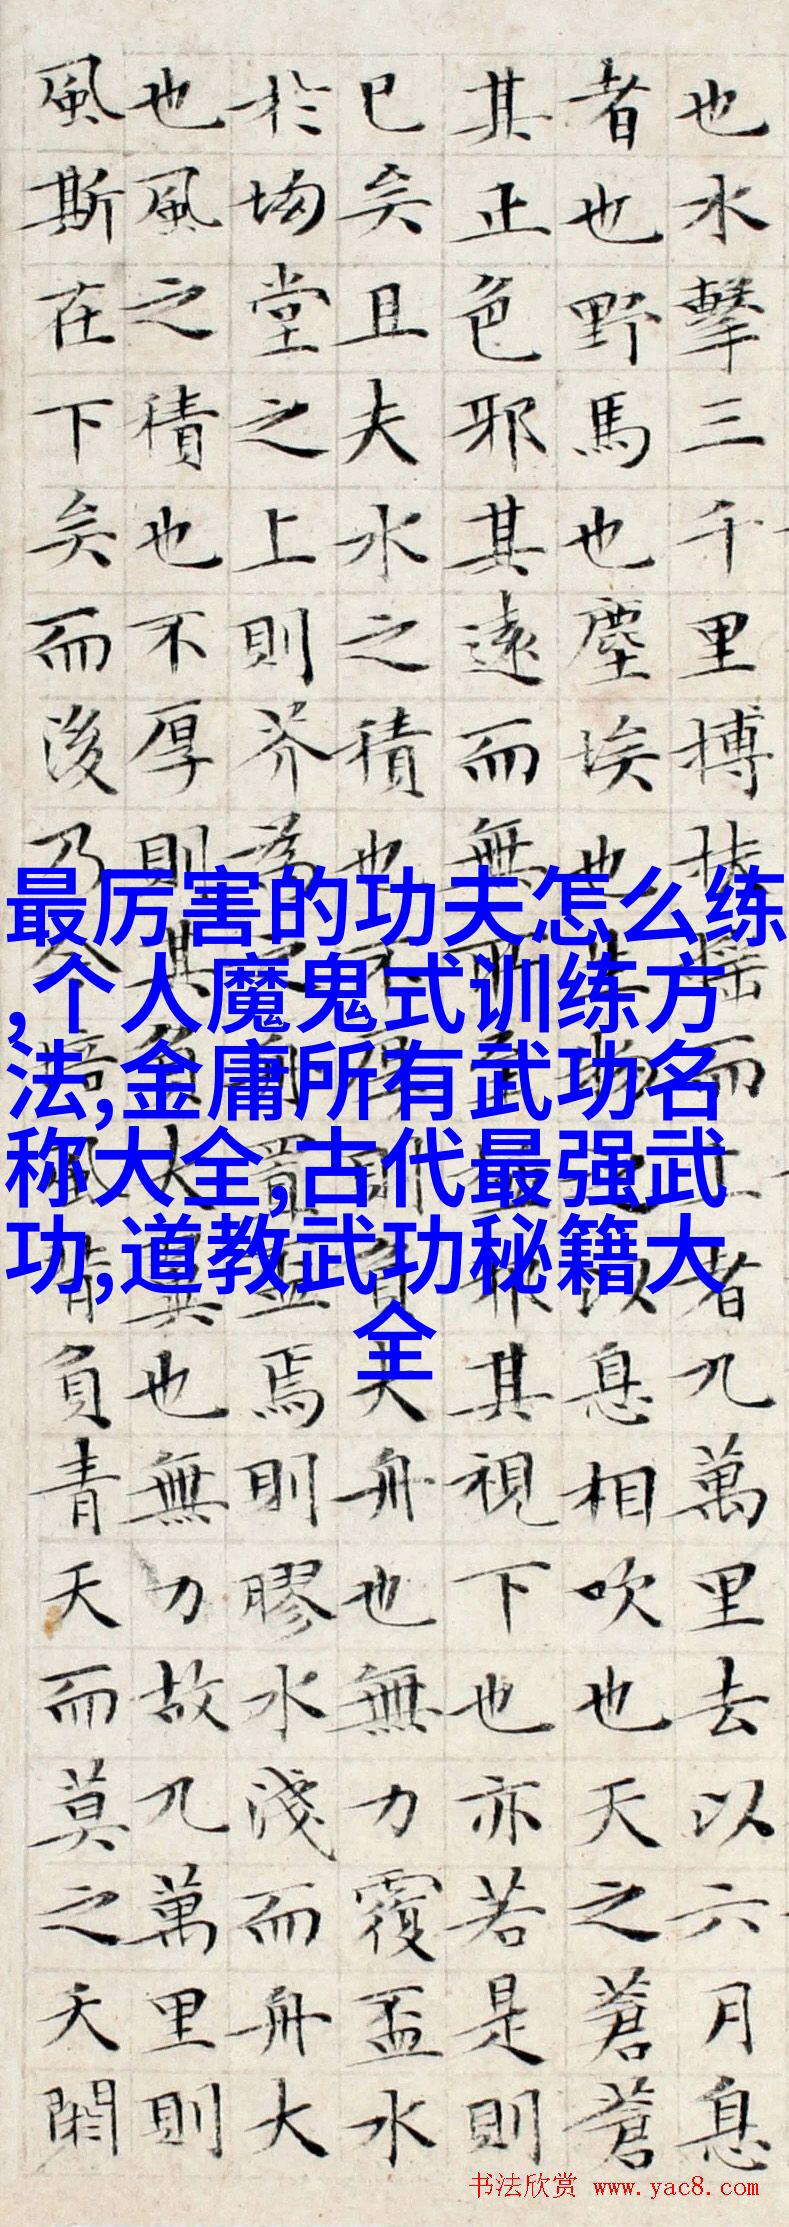 也水擊三千里搏扶搖而上者九萬里去以六月息
者也野馬也塵埃也生物之以息相吹也天之蒼蒼
其正色邪其遠而無所至極邪其視下也亦若是則
已矣且夫水之積也不厚則負大舟也無力覆盃水
於坳堂之上則芥為之舟置盃焉則膠水淺而舟大
也風之積也不厚則其負大翼也無力故九萬里則
風斯在下矣而後乃今培風背負青天而莫之夭閼
最厉害的功夫怎么练
,个人魔鬼式训练方
法,金庸所有武功名
称大全,古代最强武
功,道教武功秘籍大
全
书法欣赏 www.yac8.com